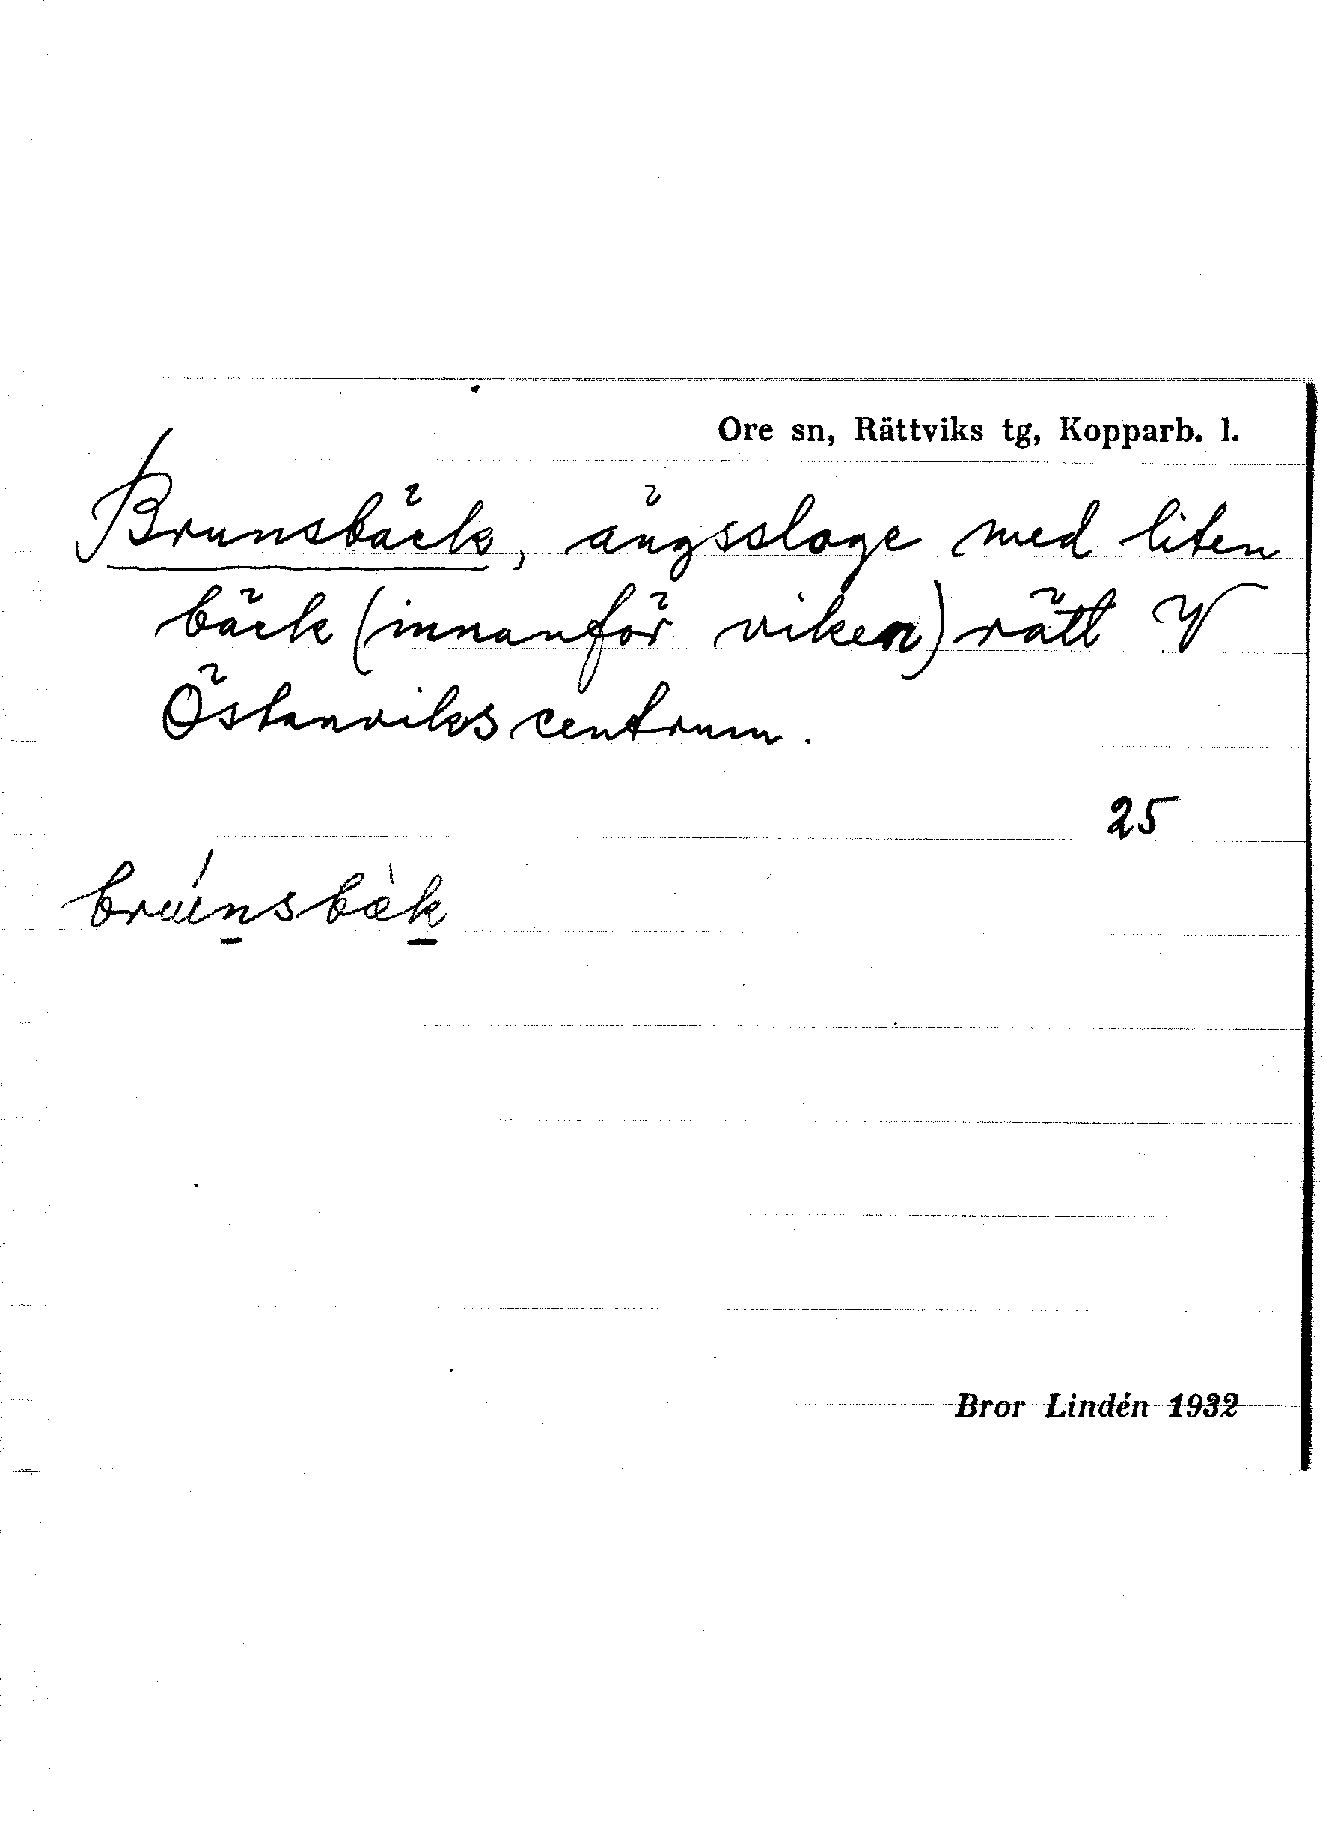 Ore sn, Rättviks tg, Kopparb. l.
Brunsbäck, ängssloge med liten
bäck (innanför viken) rätt V
Östanvikscentrum.
25
Bror Lindén 1932